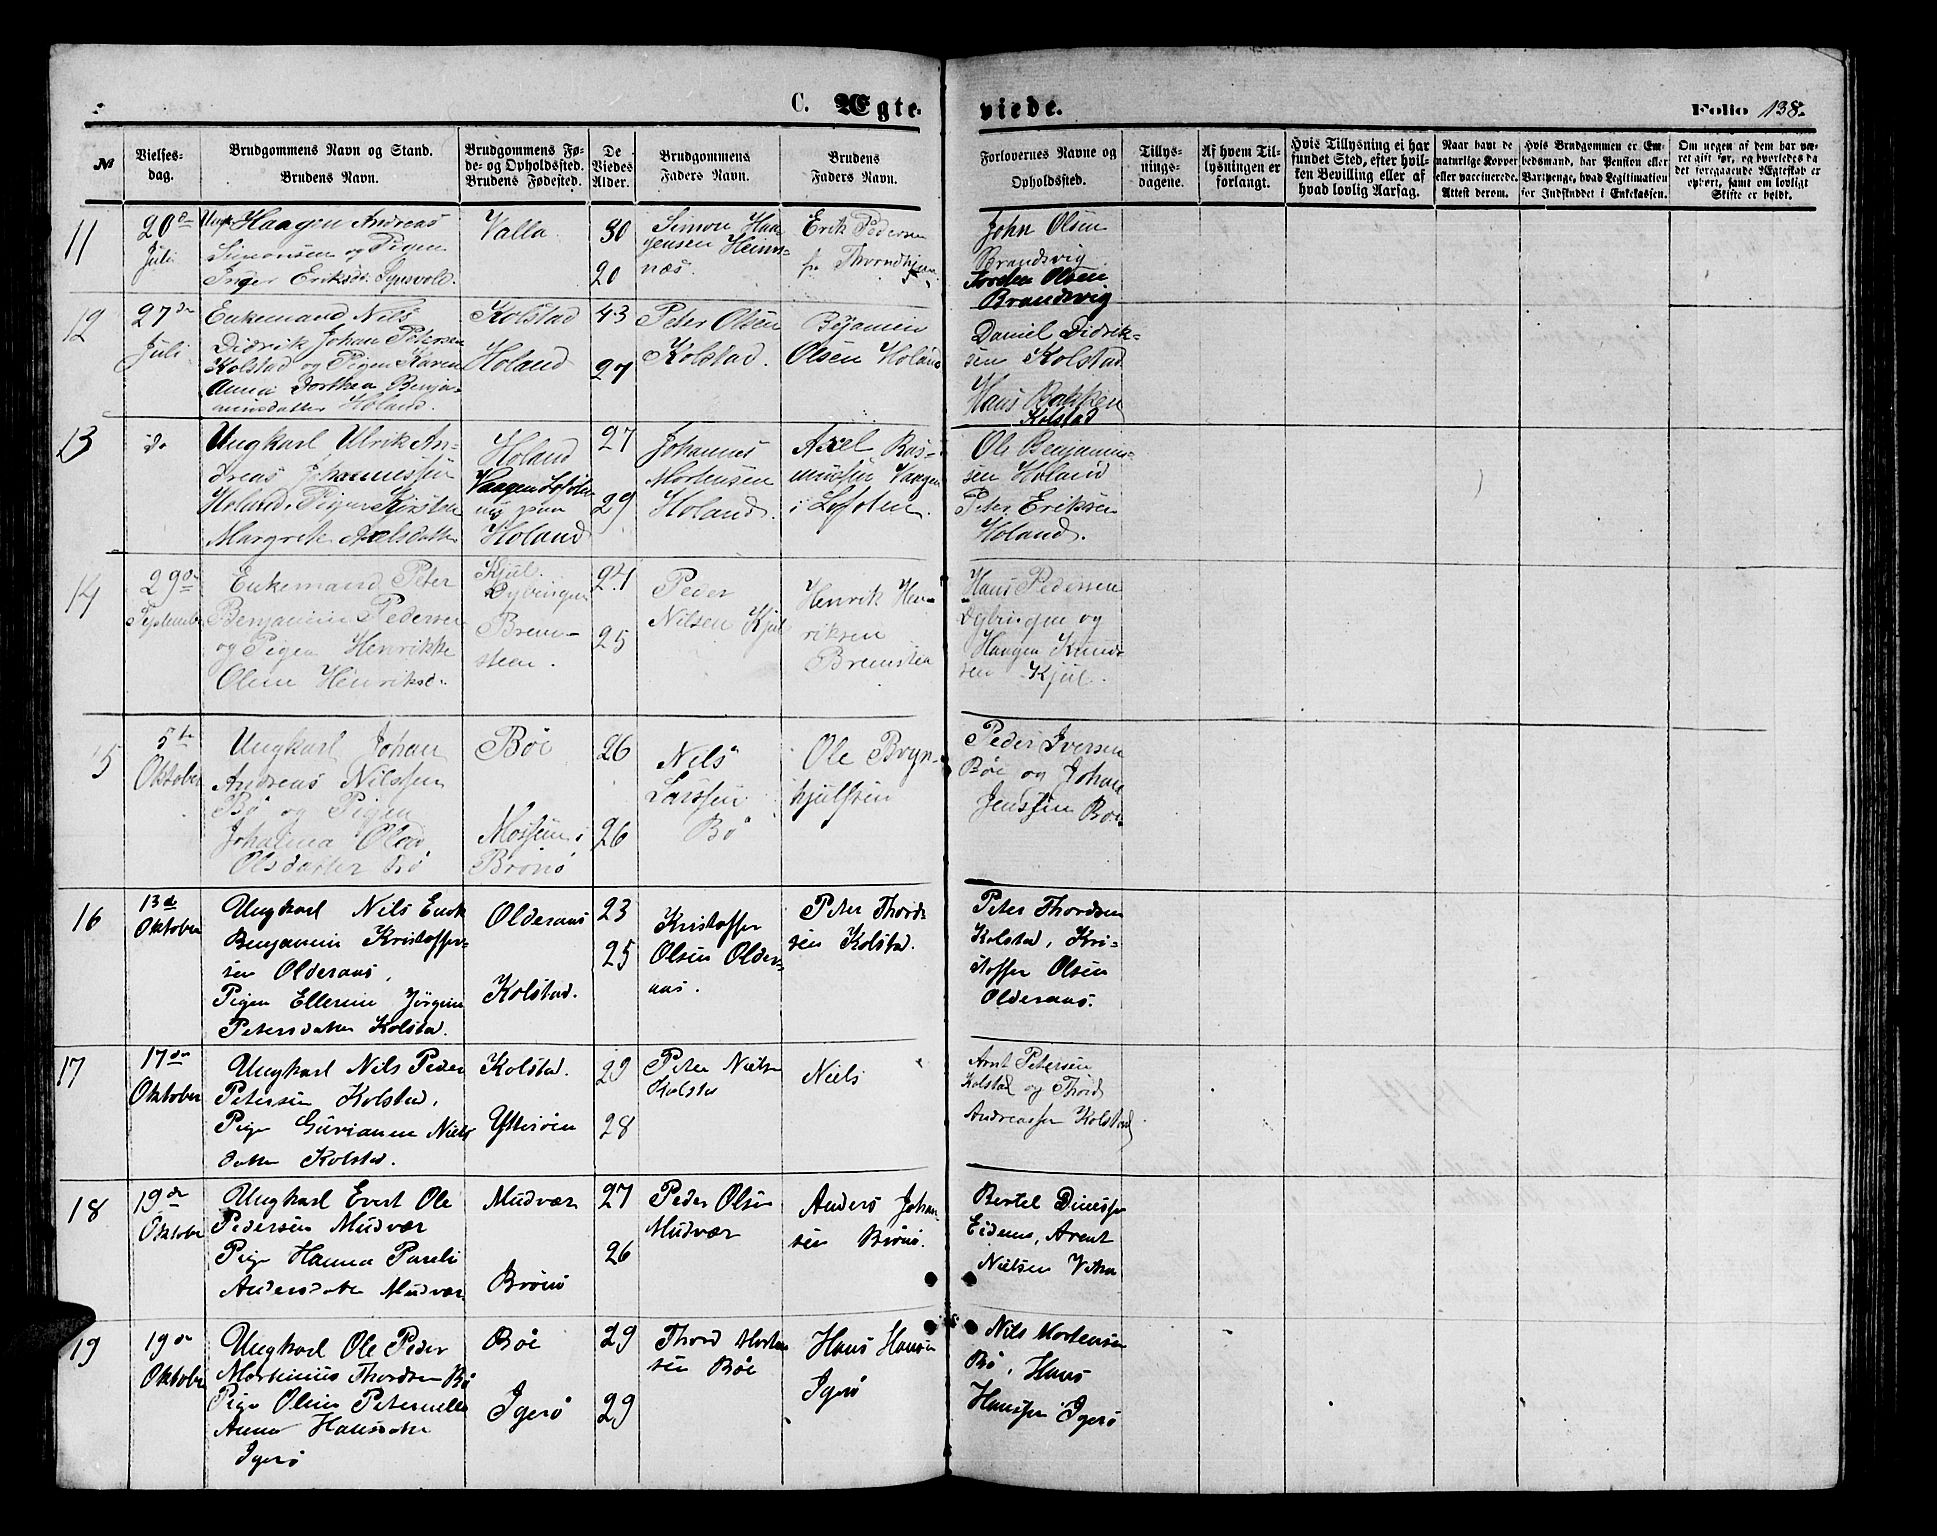 C. Ægteviede.
Folio 138.
№
Vielses-
dag.
Brudgommens Navn og Stand.
Brudens Navn.
Brudgommens Fø-
de- og Opholdssted.
Brudens Fødested.
De
Viedes
Alder.
Brudgommens
Faders Navn.
Brudens
Faders Navn.
Forlovernes Navne og
Opholdssted.
Tillys-
nings-
dagene.
Af hvem Til-
lysningen er
forlangt.
Hvis Tillysning ei har
fundet Sted, efter hvil-
ken Bevilling eller af
hvad lovlig Aarsag.
Naar havt de
naturlige Kopper
eller vaccinerede.
Attest derom.
Hvis Brudgommen er En-
bedsmand, har Pension eller
Vartpenge, hvad Legitimation
for Indskuddet i Enkekassen.
Om nogen af dem har væ-
ret gift før, og hvorledes da
det foregaaende Ægteskab er
ophørt, samt om lovligt
Skifte er holdt.
11
20de
Juli
Ungk Haagen Andreas
Simonsen og Pigen
Inger Eriksd.
Valla
30
20
Simon Haa-
gensen Heims-
næs.
Erik Pedersen
fr. Throndhjem
John Olsen
Brandsvig
Olsen
Brandsvig
12
27de
Juli
Enkemand Nils
Didrik Johan Petersen
Kolstad og Pigen Karen
Anna Dorthea Benja-
minsdatter Holand.
Kolstad
Holand
43
27
Peter Olsen
Kolstad.
Bejamin
Olsen Holand
Daniel Didrik-
sen Kolstad
Hans Bakken
Kolstad
13
do
Ungkarl Ulrik An-
dreas Johannessen
Holand. Pigen Kirsten
Margrete Axelsdatter
Holand
Vaagen Lofoten
nu paa
Holand
27
29
Johannes
Mortensen
Holand.
Axel Ras-
mussen Vaagen
i Lofoten.
Ole Benjamin-
sen Holand
Peter Eriksen
Holand.
14
29de
September
Enkemand Peter
Benjamin Pedersen
og Pigen Henrikke
Oline Henriksd.
Kjul.
Dybingen
Brem-
steen.
24
25
Peder
Nilsen Kjul
Henrik Hen-
riksen
Bremsten
Hans Pedersen
Dybingen og
Haagen Knud-
sen Kjul.
15
5te
Oktober
Ungkarl Johan
Andreas Nilssen
Bø og Pigen
Johanna
Olsdatter Bø
Bøe
i
Brønø
26
26
Nils
Larssen
Bø
Ole Bryn-
hjulfsen
Peder Iversen
Bøe og Johan
Jenssen Bøe
16
13de
Oktober
Ungkarl Nils Enok
Benjamin Kristoffer-
sen Olderaas,
Pigen Ellerine Jørgine
Petersdatter Kolstad.
Olderaas
Kolstad.
23
25
Kristoffer
Olsen Older-
aas.
Peter Thord-
sen Kolstad.
Peter Thordsen
Kolstad, Kri-
stoffer Olsen
Olderaas.
17
17de
Oktober
Ungkarl Nils Peder
Petersen Kolstad,
Pige Gurianna Niels
datter Kolstad.
Kolstad.
Ytterøen
29
28
Peter Nielsen
Kolstad
Niels
Arnt Petersen
Kolstad og Thord
Andreassen Kolstad
18
19de
Oktober
Ungkarl Evert Ole
Pedersen Mudvær
Pige Hanna Pareli
Andersdatter Mudvær
Mudvær
Brønø
27
26
Peder Olsen
Mudvær
Anders Johan-
sen Brønø.
Bertel Dinessen
Eidem, Arent
Nielsen
19
19de
Oktober
Ungkarl Ole Peder
Martinius Thordsen Bø
Pige Oline Peternelle
Anna Hansdatter
Igerø
Bøe
Igerø
29
29
Thord Morten-
sen Bøe
Hans Hansen
Igerø
Nils Mortensen
Bø, Hans
Hanssen Igerø